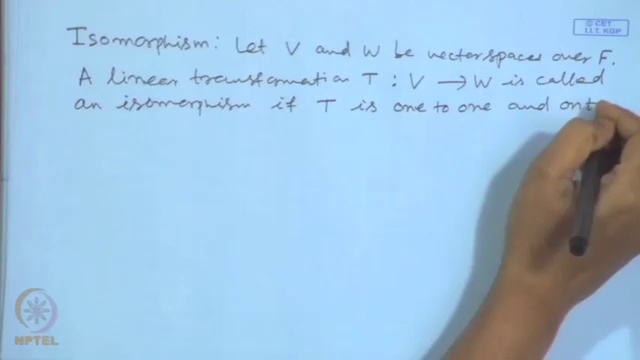 © CET
I.I.T. KGP
Isomorphism: Let V and W be vector spaces over F.
A linear transformation T : V → W is called
an isomorphism if T is one to one and ont
NPTEL